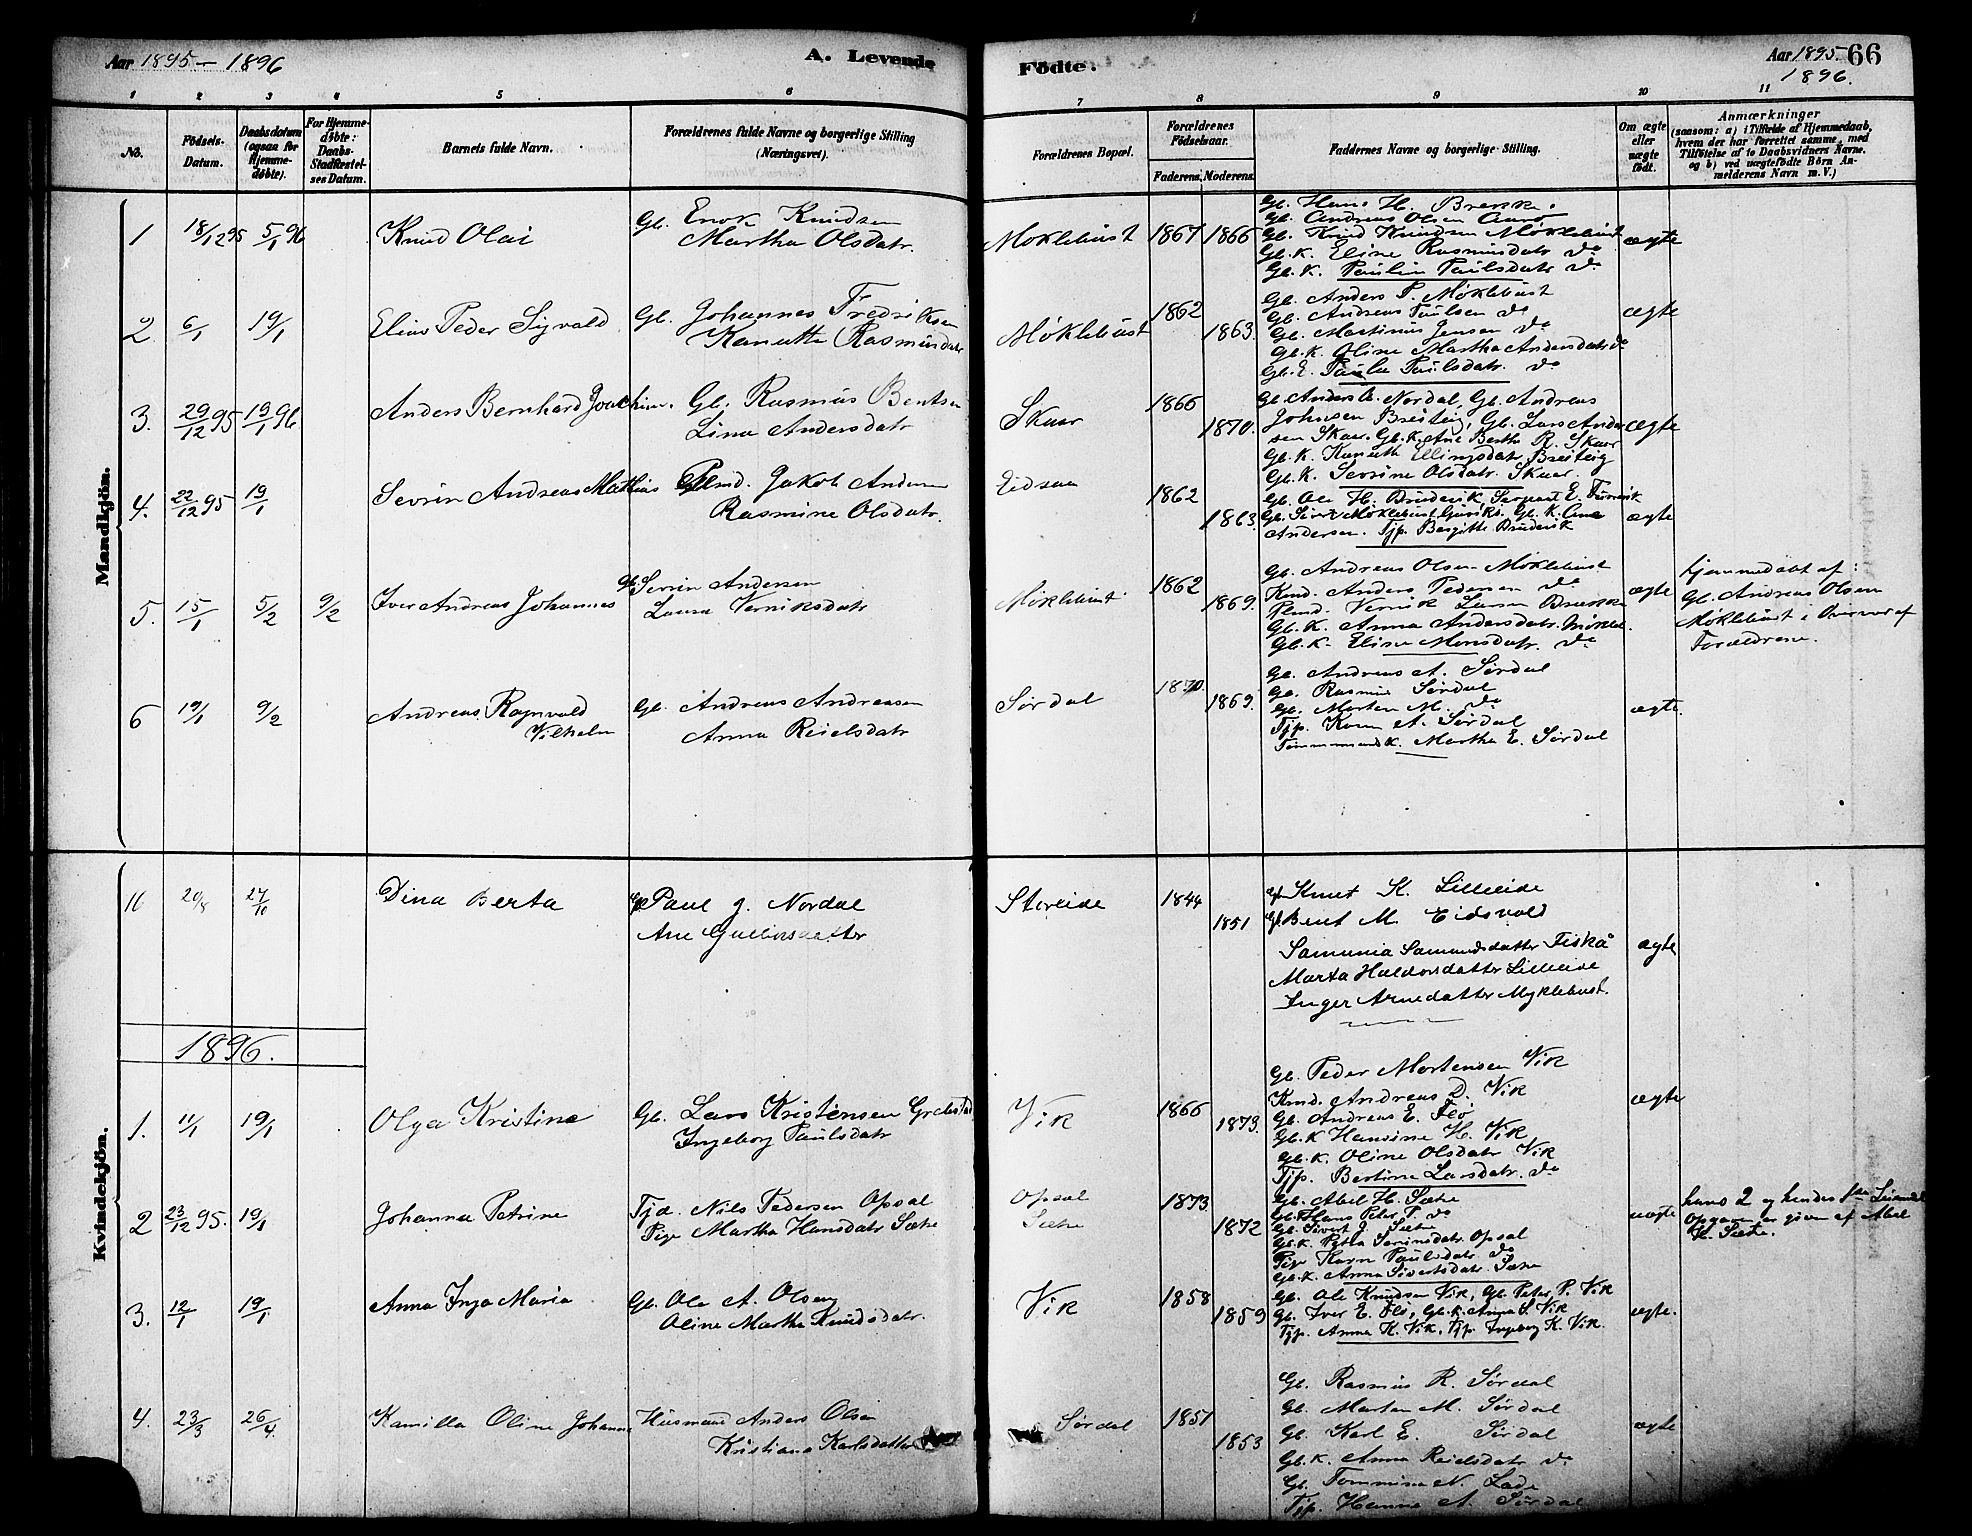 Aar 1895 – 1896
A. Levende
Födte.
Aar 1895 66
1896.
1 2 3 4 5 6 7 8 9 10 11
No.
Födsels-Datum.
Daabsdatum (ogsaa for Hjemme-döbte).
For Hjemme-döbte: Daabs-Stadfæstel-ses Datum.
Barnets fulde Navn.
Forældrenes fulde Navne og borgerlige Stilling (Næringsvei).
Forældrenes Bopæl.
Forældrenes Födselsaar.
Faderens. Moderens.
Faddernes Navne og borgerlige Stilling.
Om ægte eller uægte födt.
Anmærkninger
(saasom: a) i Tilfælde af Hjemmedaab, hvem der har forrettet samme, med Tilföielse af to Daabsvidners Navne, og b) ved uægtefödte Börn An-melderens Navn m. V.)
Mandkjön.
1 18/12 95 5/1 96 Knud Olai
Gb. Enok Knudsen
Martha Olsdatr.
Moklebust 1867 1866
Gb. Hans H. Brekke.
Gb. Andreas Olsen Aarö
Gb. Knud Knudsen Möklebust
Gb. K. Eline Rasmusdatr do
Gb. K. Paulin Paulsdatr do
ægte
2. 6/1 19/1 Elias Peder Sigvald
Gb. Johannes Fredriksen
Kanutte Rasmusdatr
Möklebust 1862 1863.
Gb. Anders P. Möklebust
Gb. Andreas Paulsen do
Gb. Martinus Jensen do
Gb. K. Oline Martha Andersdatr do
Gb. E. Paula Paulsdatr. do
ægte
3. 29/12 95 19/1 96 Anders Bernhard Joachim.
Gb. Rasmus Bentsen
Lina Andersdatr
Skaar 1866 1870.
Gb. Anders A. Nordal, Gb. Andreas
Johnsen Breiteig, Gb. Lars Ander
sen Skaar. Gb. K. Ane Berthe R. Skaar
Gb. K. Kanutte Ellingsdatr Breiteig
Gb. K. Serine Olsdatr. Skaar.
ægte
4. 22/12 95 19/1 Sevrin Andreas Mathias
Plmd. Jakob Andersen
Rasmine Olsdatr.
Eidsaa 1862 1863.
Gb. Ole H. Bruderik, Serpart E.
Gb. Siver Möklebust Gb. K. Ane
Andersen. Tjp. Bergitte Bruderik
ægte
5. 15/1 5/2 9/2 Iver Andreas Johannes
Gb. Sevrin Andersen
Laura Verniksdatr
Möklebust 1862 1869.
Gb. Andreas Olsen Möklebust
Kmd. Anders Pedersen do
Plmd. Vernik Larsen Brække
Gb. K. Anna Andersdatr. Mökleb.
Gb. K. Eline Monsdatr. do
ægte
hjemmedöbt af:
Gb. Andreas Olsen
Möklebust i Overvær af
Forældrene.
6 19/1 9/2 Andreas Ragnvald
Vilhelm
Gb. Andreas Andreasen
Anna Reielsdatr
Sördal 1870. 1869.
Gb. Andreas A. Sördal
Gb. Rasmus Sördal
Gb. Morten M. do
Tjp. Karen A. Sördal
Tömmermandk. Martha E. Sördal
ægte.
Kvindekjön.
11 20/8 27/10 Dina Berta
Gb. Paul J. Nordal
Ane Gulliksdatter
Storeide 1844 1851
Gb. Knut K. Lilleeide
Gb. Bent M. Eidsvold
Samunia Samundsdatter Fiskå
Marta Haldorsdatter Lilleeide
Inger Arnedatter Myklebust.
ægte
1896.
1. 11/1 19/1 Olga Kristine
Gb. Lars Kristensen
Ingeborg Paulsdatr
Vik 1866 1873.
Gb. Peder Mortensen Vik
Kmd. Andreas D. Vik
Gb. Andreas E. Flö
Gb. K Hansine H. Vik
Gb. K. Oline Olsdatr Vik
Tjp. Bertine Larsdatr. do
ægte
2 23/12 95. 19/1 Johanna Petrine
Tjd. Nils Pedersen Opsal
Pige Martha Hansdatr Sætre
Opsal
Sætre
1873 1872
Gb. Abel H. Sætre
Gb. Hans Peter P. do
Gb. Sivert J. Sætre
Gb. K. Petra Serinsdatr. Opsal
Pige Karn Paulsdatr. do
Gb. K. Anna Sivertsdatr. Sætre
uægte
hans 2 og hendes 1ste Leiermaal
Opgaven er given af Abel
H. Sætre.
3. 12/1 19/1 Anna Inga Maria
Gb. Ole A. Olsen
Oline Martha Knudsdatr.
Vik 1858 1859
Gb. Ole Knudsen Vik, Gb. Peter P. Vik
Gb. Iver E. Flö, Gb. K. Anna S. Vik
Tjp. Anna K. Vik, Tjp. Ingeborg K. Vik.
ægte.
4. 23/3 26/4. Kamilla Oline Johanne
Husmand Anders Olsen
Kristiana Karlsdatter
Sördal 1851 1853
Gb. Rasmus R. Sördal
Gb. Marten M. Sördal
Gb. Karl E. Sördal
Gb. K. Anna Reielsdatr do
Gb. Tommine N. Lade
Tjp. Hanna A. Sördal
ægte